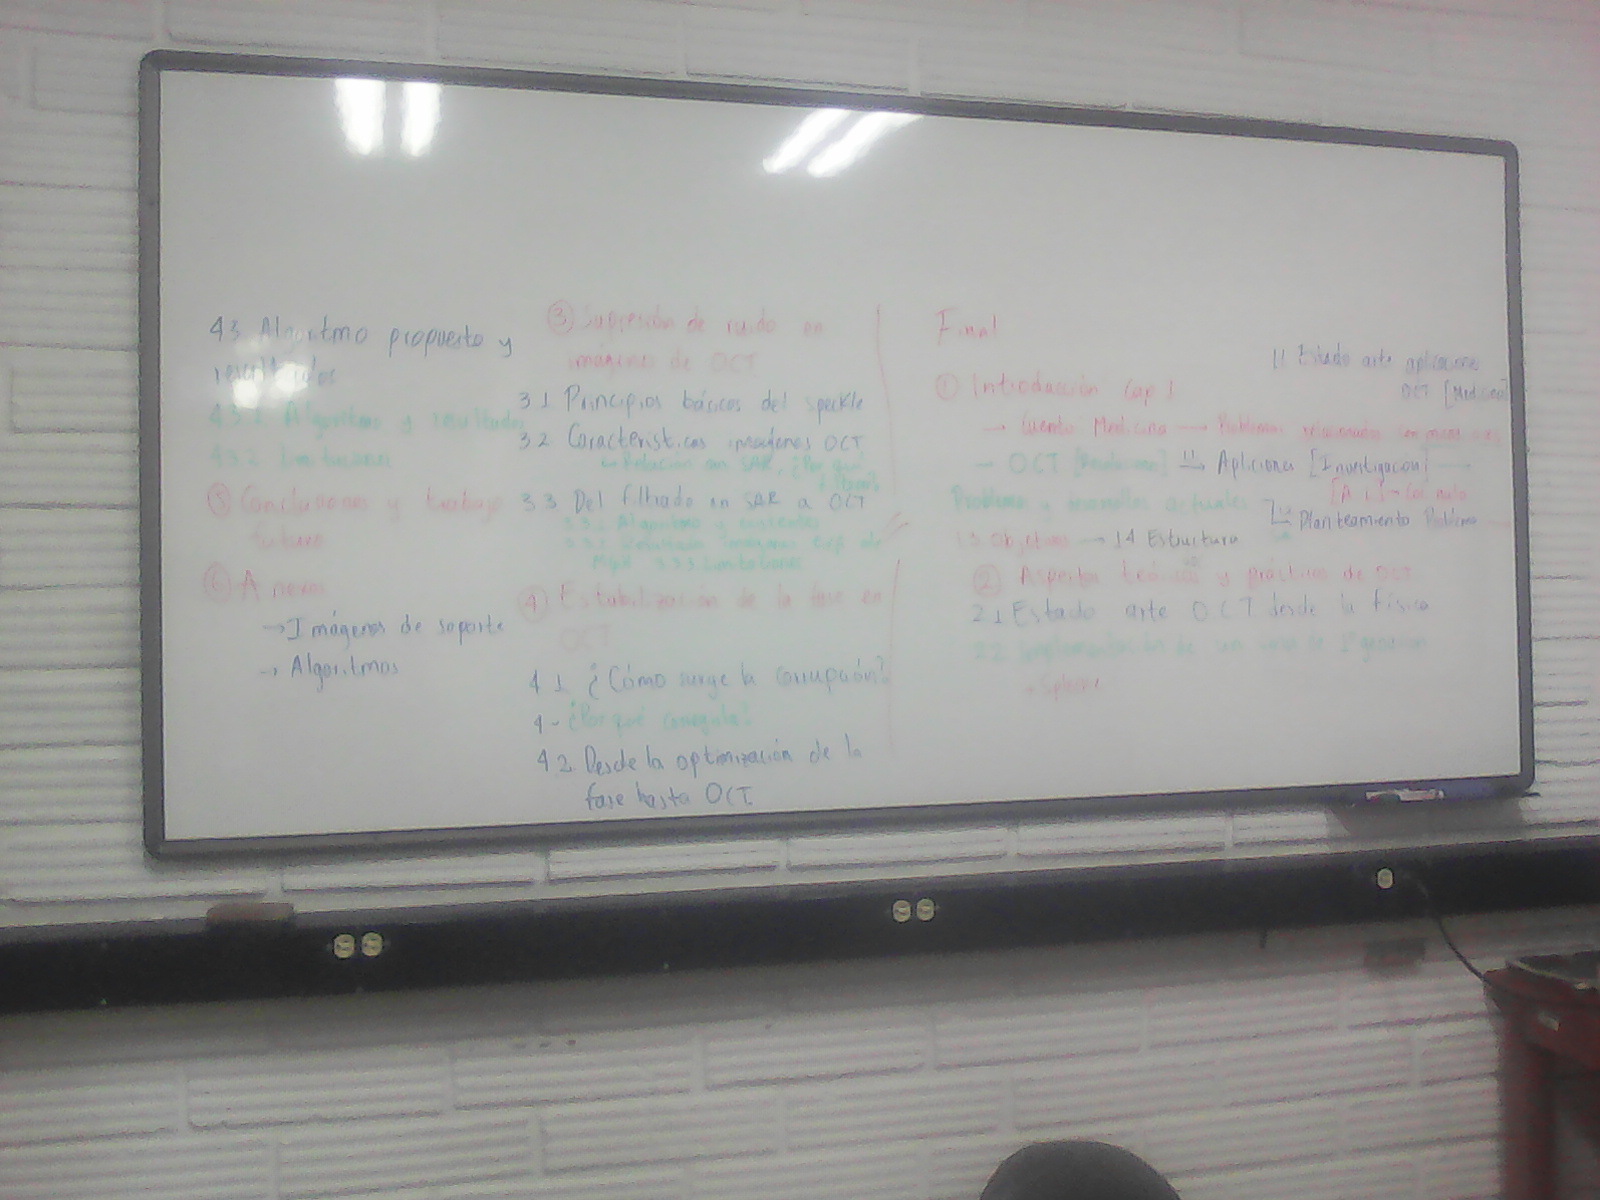 4.3 Algoritmo propuesto y
resultados
4.3.1 Algoritmo y resultados
4.3.2 Limitaciones
⑤ Conclusiones y trabajo
futuro
⑥ Anexos
→ Imágenes de soporte
→ Algoritmos
③ Supresión de ruido en
imágenes de OCT
3.1 Principios básicos del speckle
3.2 Características imágenes OCT
Relación con SAR, ¿Por qué
3.3 Del filtrado en SAR a OCT
3.3.1 Algoritmos existentes
3.3.2 Resultado imágenes
3.3.3 Limitaciones
④ Estabilización de la fase en
OCT
4.1 ¿Cómo surge la corrupción?
4- ¿Por qué corregirla?
4.2 Desde la optimización de la
fase hasta OCT
Final
1.1 Estado arte aplicaciones
OCT [Medicina]
① Introducción Cap 1
→ Cuento Medicina → Problemas relacionados con
- OCT → [Investigación]
Problemas y actuales
Planteamiento Problema
1.3 Objetivos → 1.4 Estructura
② Aspectos teóricos y prácticos de OCT
2.1 Estado arte OCT desde la física
2.2 Implementación de un